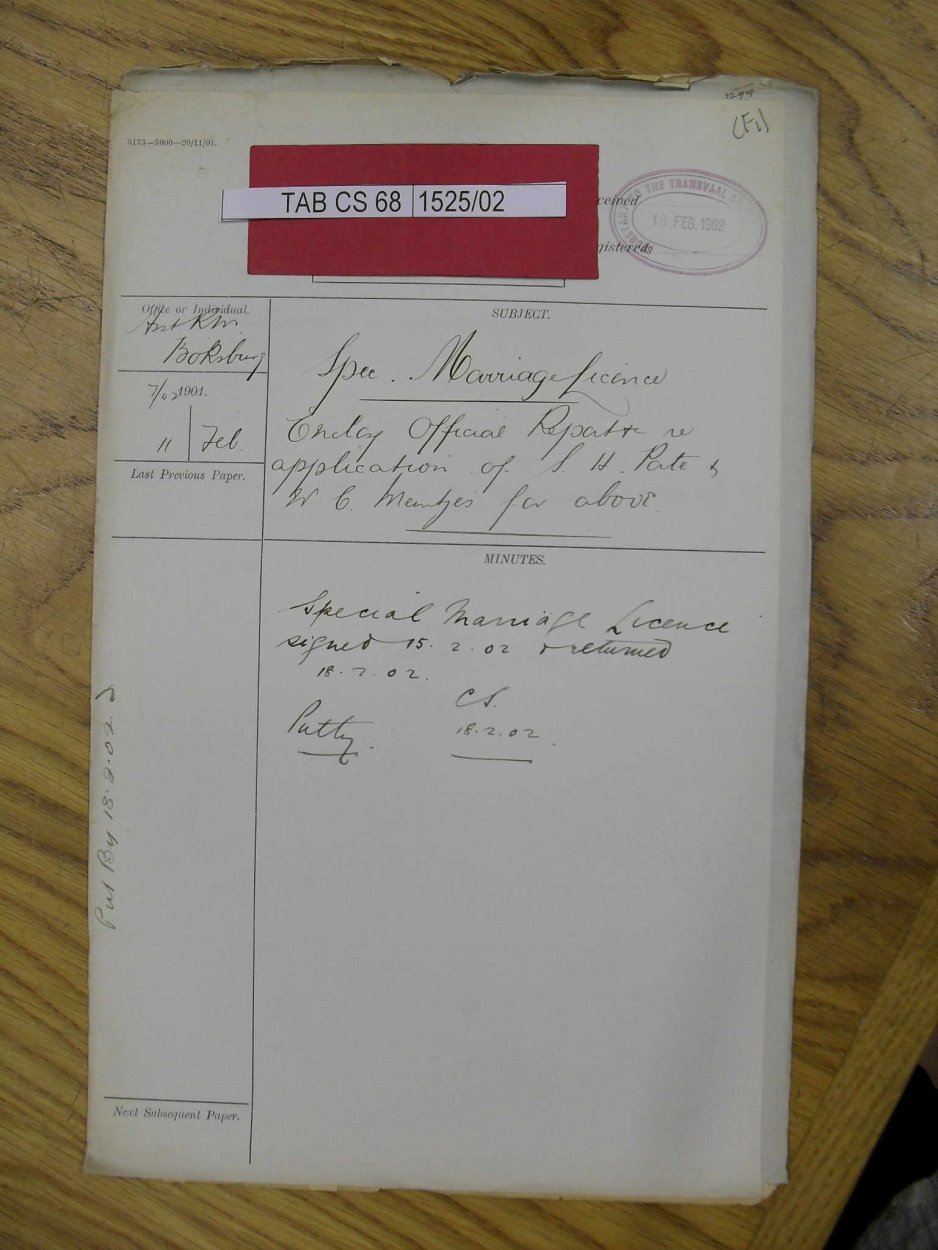 7299
5173—5000—20/11/01.
TAB CS 68 1525/02
ceived
THE TRANSVAAL
18 FEB. 1902
gistered
Office or Individual.
Boksburg
7/02 1901.
11 Feb.
Last Previous Paper.
SUBJECT.
Spec. Marriage Licence
Enclog Official Report re
application of S. H. Pate &
W. C. Meintjes for above.
MINUTES.
Special Marriage Licence
signed 15.2.02 & returned
18.2.02.
CS.
18.2.02.
Put By 18.2.02
Next Subsequent Paper.